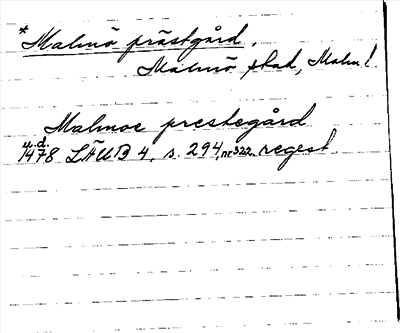 *Malmö prästgård.
Malmö stad, Malm. l
Malmoe prestegård
u.d.
1478 LÄUB 4, s. 294, nr 322. regest.